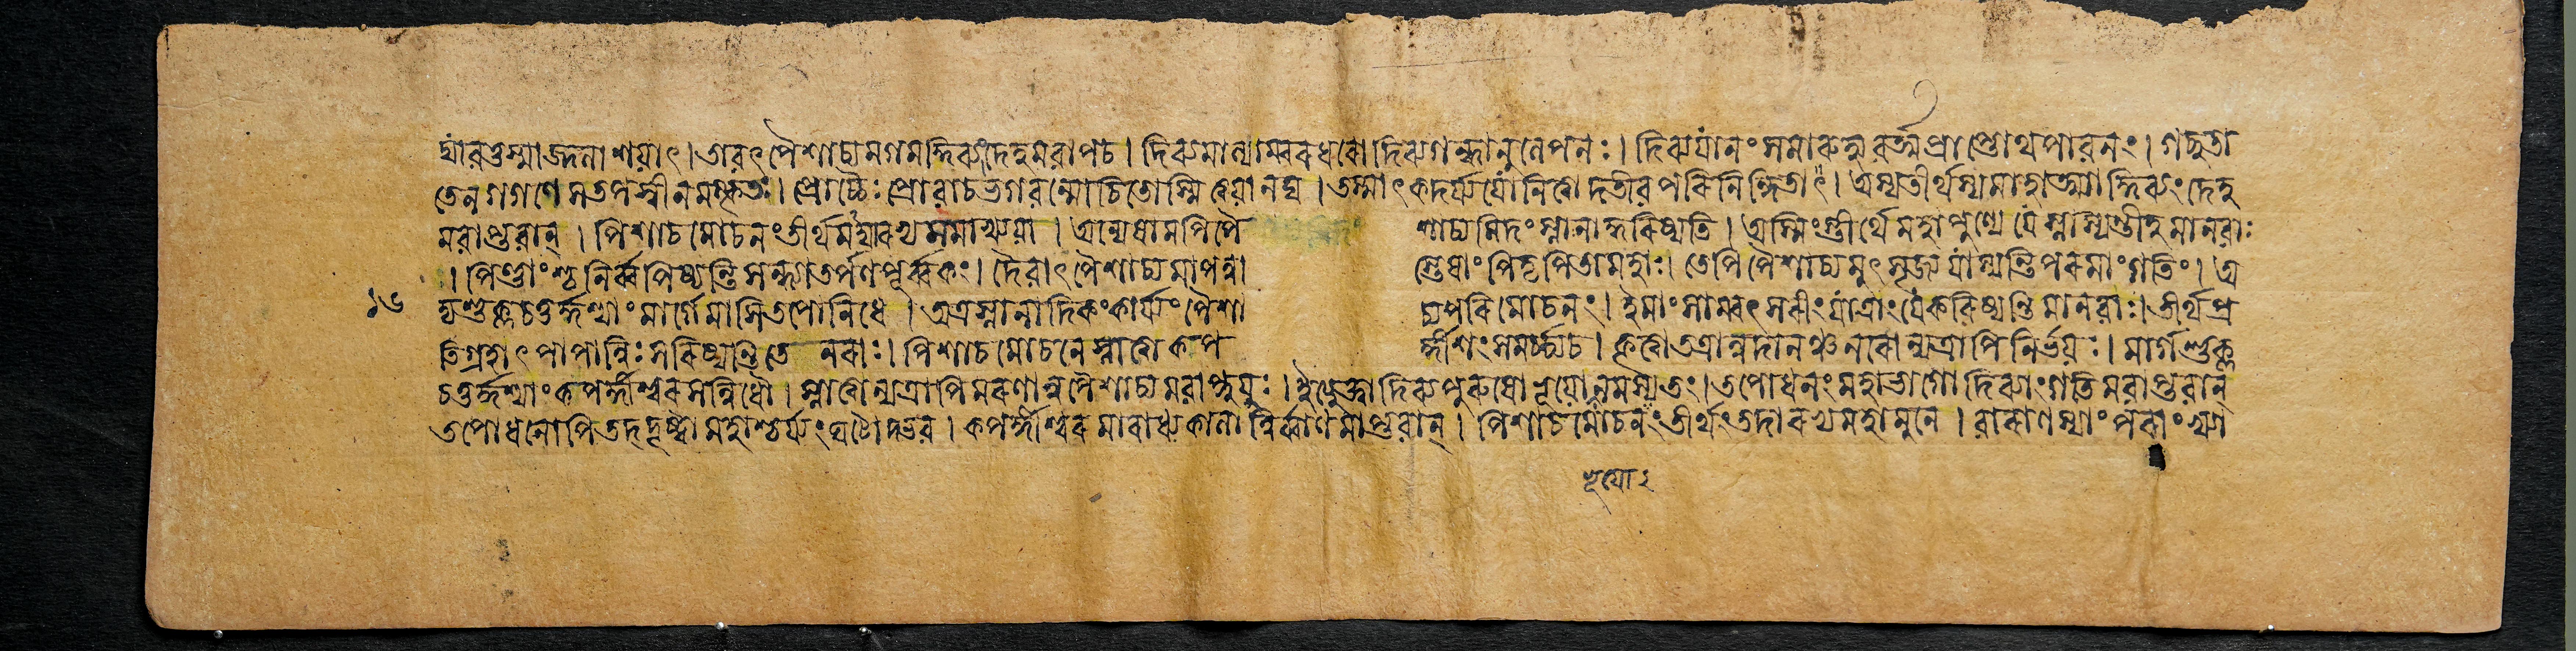 যাবত্তস্মাজ্জলাশয়াৎ।তাবৎপৈশাচ্যমগমদ্দিব্যংদেহমবাপচ। দিব্যমাল্যাম্বরধরোদিব্যগন্ধানুলেপনঃ। দিব্যযানংসমারুহ্যবর্ত্মপ্রাপ্তোথপাবনং। গচ্ছতা
তেনগগণেসতপস্বীনমস্কৃতঃ। প্রোচ্চৈঃপ্রোবাচভগবন্মোচিতোস্মিত্বয়ানঘ ।তস্মাৎকদর্য্যযোনিত্বাদতীবপরিনিন্দিতাৎ। অস্যতীর্থস্যমাহাত্ম্যাদ্দিব্যংদেহ
মবাপ্তবান্। পিশাচমোচনংতীর্থমদ্যারভ্যসমাখ্যয়া । অন্যেষামপিপৈ শাচ্যমিদংস্নানাদ্ধরিষ্যতি। অস্মিংস্তীর্থেমহাপুণ্যেযেস্নাস্যন্তীহমানবাঃ
। পিণ্ডাংশ্চনির্ব্বপিষ্যন্তিসন্ধ্যাতর্পণপূর্ব্বকং। দৈবাৎপৈশাচ্যমাপন্না স্তেষাংপিতৃপিতামহাঃ। তেপিপৈশাচ্যমুৎসৃজ্যযাস্যন্তিপরমাংগতিং। অ
১৬ দ্যশুক্লচতুর্দ্দশ্যাংমার্গেমাসিতপোনিধে । অত্রস্নানাদিকংকার্য্যংপৈশা চ্যপরিমোচনং। ইমাংসাম্বৎসরীংযাত্রাংযেকরিষ্যন্তিমানবাঃ।তীর্থপ্র
তিগ্রহাৎপাপান্নিঃসরিষ্যন্তিতে নরাঃ। পিশাচমোচনেস্নাত্বাকপ র্দ্দীশংসমর্চ্চ্যচ। কৃত্বাতত্রান্নদানঞ্চনরোন্যত্রাপিনির্ভয়ঃ। মার্গশুক্ল
চতুর্দ্দশ্যাংকপর্দ্দীশ্বরসন্নিধৌ। স্নাত্বান্যত্রাপিমরণান্নপৈশাচ্যমবাপ্নুয়ুঃ। ইত্যুক্ত্বাদিব্যপুরুষোভূয়োনমস্যতং।তপোধনংমহাভাগোদিব্যাংগতিমবাপ্তবান্
তপোধনোপিতদ্দৃষ্ট্বামহাশ্চর্য্যংঘটোদ্ভব । কপর্দ্দীশ্বরমারাধ্যকালান্নির্ব্বাণমাপ্তবান্। পিশাচমোচনংতীর্থংতদারভ্যমহামুনে । বারাণস্যাংপরাংখ্যা
ভূযো২